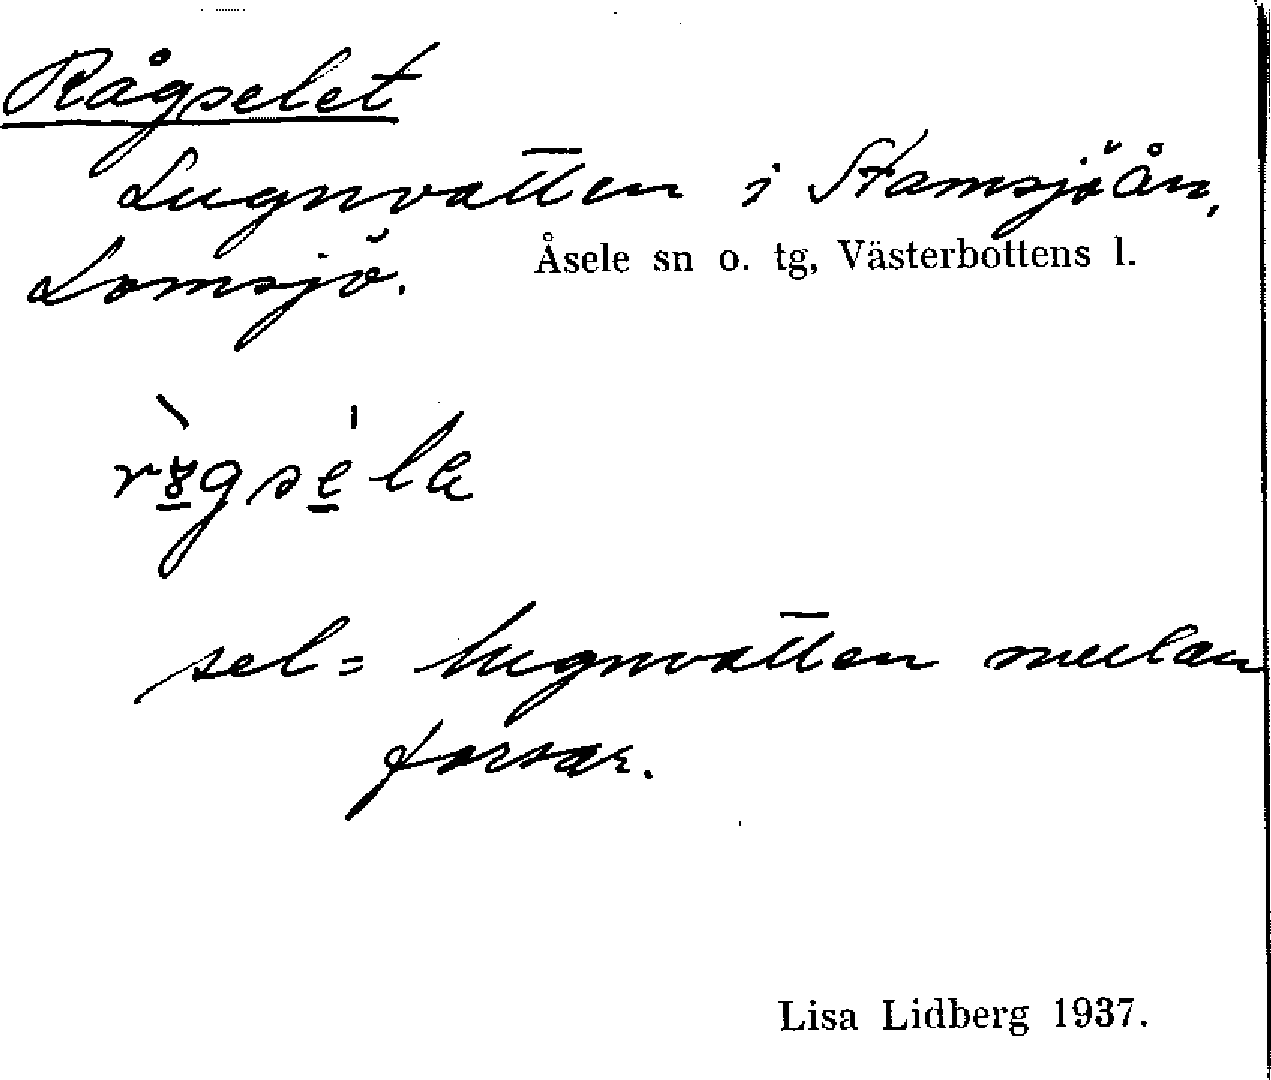 Rågselet
Lugnvatten i Stamsjöån,
Lomsjö. Åsele sn o. tg, Västerbottens l.
sel = lugnvatten mellan
forsar.
Lisa Lidberg 1937.